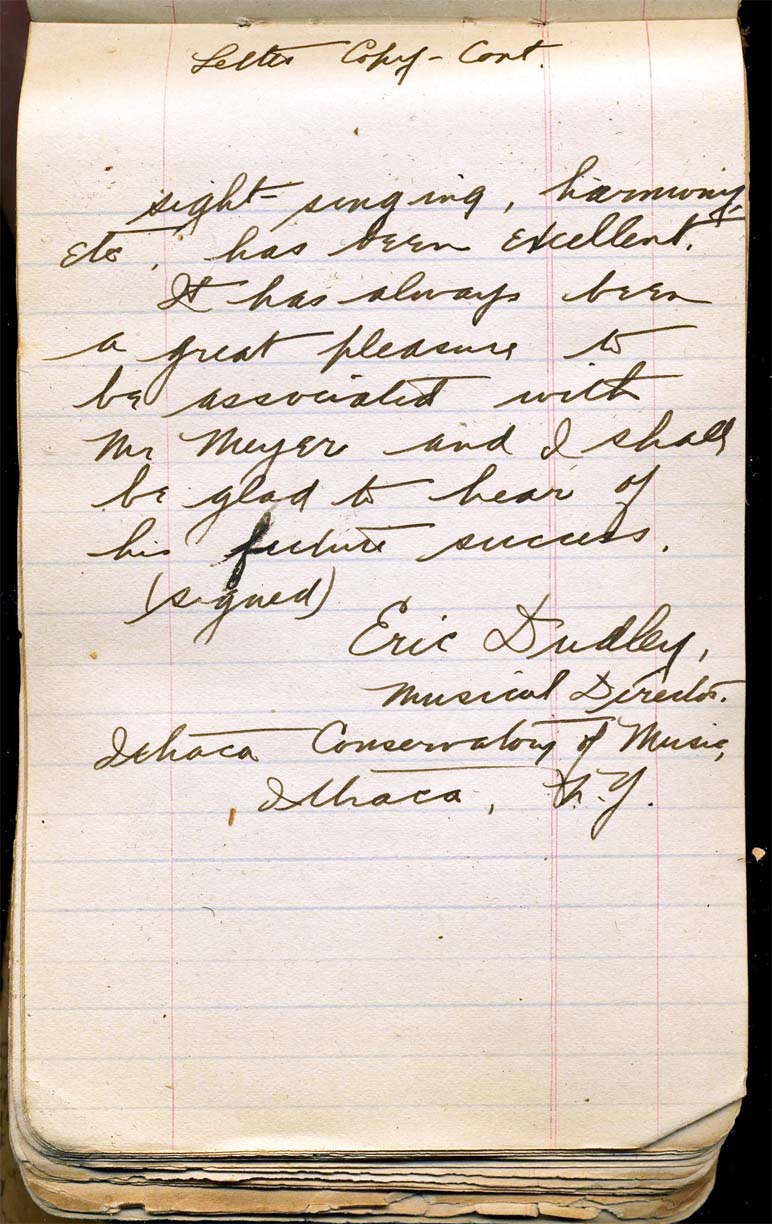 Letter Copy - Cont.
sight-singing, harmony,
etc., has been excellent.
It has always been
a great pleasure to
be associated with
Mr Meyer and I shall
be glad to hear of
his future success.
(signed)
Eric Dudley,
Musical Director.
Ithaca Conservatory of Music,
Ithaca, N.Y.